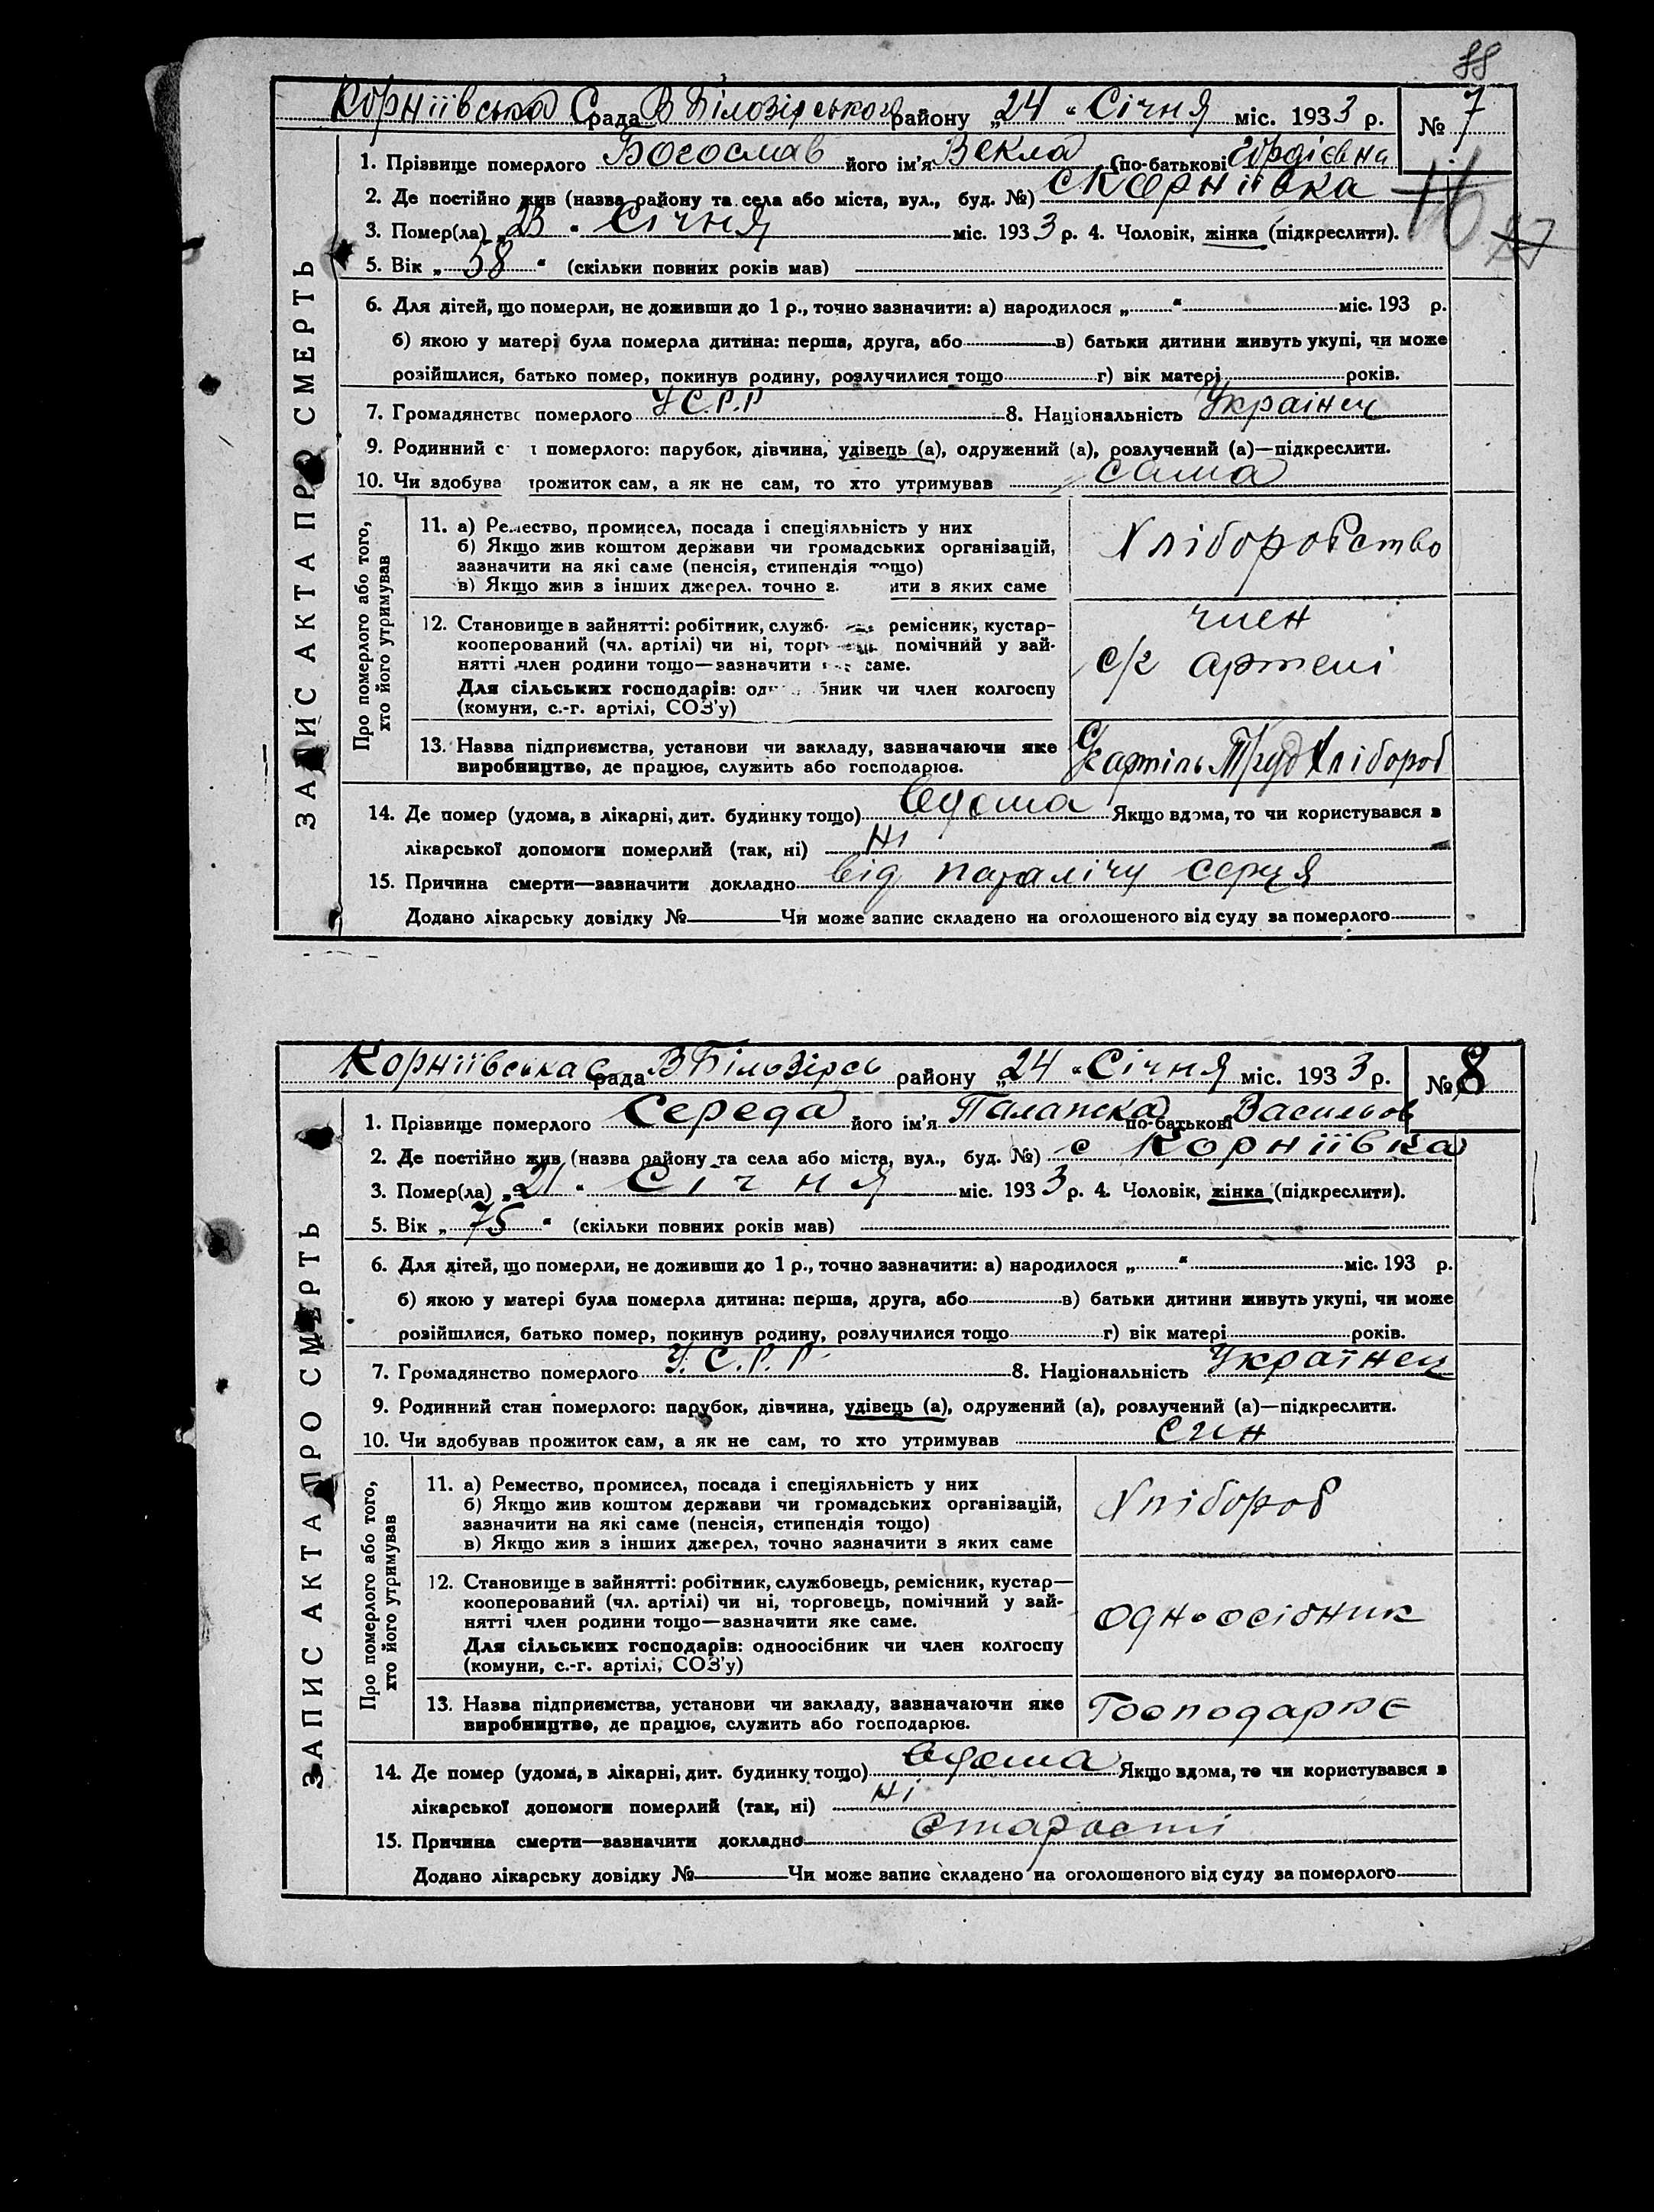 88
Корніївська С рада В Білозірського району „24 “ Січня міс. 1933 р. № 7
1. Прізвище померлого Богослав його ім'я Векла (по-батькові Гордієвна
16
2. Де постійно жив (назва району та села або міста, вул., буд. №) с Корніївка
3. Помер(ла) „23 “ Січня міс. 1933 р. 4. Чоловік, жінка (підкреслити).
5. Вік „ 58 “ (скільки повних років мав)
6. Для дітей, що померли, не доживши до 1 р., точно зазначити: а) народилося „ “ міс. 193 р.
б) якою у матері була померла дитина: перша, друга, або в) батьки дитини живуть укупі, чи може
розійшлися, батько помер, покинув родину, розлучилися тощо г) вік матері років.
7. Громадянство померлого У С.Р.Р 8. Національність Українец
9. Родинний с померлого: парубок, дівчина, удівець (а), одружений (а), розлучений (а)—підкреслити.
10. Чи здобува прожиток сам, а як не сам, то хто утримував сама
ЗАПИС АКТА ПРО СМЕРТЬ
Про померлого або того,
хто його утримував
11. а) Ремество, промисел, посада і спеціяльність у них
б) Якщо жив коштом держави чи громадських організацій,
зазначити на які саме (пенсія, стипендія тощо)
в) Якщо жив з інших джерел, точно з ити з яких саме
Хліборобство
12. Становище в зайнятті: робітник, служб ремісник, кустар-
кооперований (чл. артілі) чи ні, торг помічний у зай-
нятті член родини тощо—зазначити саме.
Для сільських господарів: од бник чи член колгоспу
(комуни, с.-г. артілі, СОЗ'у)
член
с/г артелі
13. Назва підприємства, установи чи закладу, зазначаючи яке
виробництво, де працює, служить або господарює.
С/г артіль Труд Хлібороб
14. Де помер (удома, в лікарні, дит. будинку тощо) вдома Якщо вдома, то чи користувався з
лікарської допомоги померлий (так, ні) Ні
15. Причина смерти—зазначити докладно від паралічу серця
Додано лікарську довідку № Чи може запис складено на оголошеного від суду за померлого
Корніївська с рада В Білозірсь району „24 “ Січня міс. 1933 р. № 8
1. Прізвище померлого Середа його ім'я Палапска по-батькові Васильов
2. Де постійно жив (назва району та села або міста, вул., буд. №) с Корніївка
3. Помер(ла) „21 “ Січня міс. 1933 р. 4. Чоловік, жінка (підкреслити).
5. Вік „ 75 “ (скільки повних років мав)
6. Для дітей, що померли, не доживши до 1 р., точно зазначити: а) народилося „ “ міс. 193 р.
б) якою у матері була померла дитина: перша, друга, або в) батьки дитини живуть укупі, чи може
розійшлися, батько помер, покинув родину, розлучилися тощо г) вік матері років.
7. Громадянство померлого У. С.Р.Р 8. Національність Українец
9. Родинний стан померлого: парубок, дівчина, удівець (а), одружений (а), розлучений (а)—підкреслити.
10. Чи здобував прожиток сам, а як не сам, то хто утримував син
ЗАПИС АКТА ПРО СМЕРТЬ
Про померлого або того,
хто його утримував
11. а) Ремество, промисел, посада і спеціяльність у них
б) Якщо жив коштом держави чи громадських організацій,
зазначити на які саме (пенсія, стипендія тощо)
в) Якщо жив з інших джерел, точно зазначити з яких саме
Хлібороб
12. Становище в зайнятті: робітник, службовець, ремісник, кустар—
кооперований (чл. артілі) чи ні, торговець, помічний у зай-
нятті член родини тощо—зазначити яке саме.
Для сільських господарів: одноосібник чи член колгоспу
(комуни, с.-г. артілі, СОЗ'у)
одноосібник
13. Назва підприємства, установи чи закладу, зазначаючи яке
виробництво, де працює, служить або господарює.
Господарює
14. Де помер (удома, в лікарні, дит. будинку тощо) вдома Якщо вдома, то чи користувався з
лікарської допомоги померлий (так, ні) Ні
15. Причина смерти—зазначити докладно Старості
Додано лікарську довідку № Чи може запис складено на оголошеного від суду за померлого